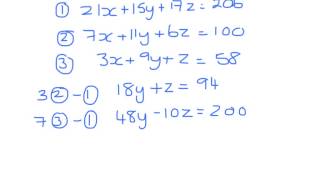 ① 21x+15y+17z=206
② 7x+11y+6z=100
③ 3x+9y+z=58
3②-① 18y+z=94
7③-① 48y-10z=200